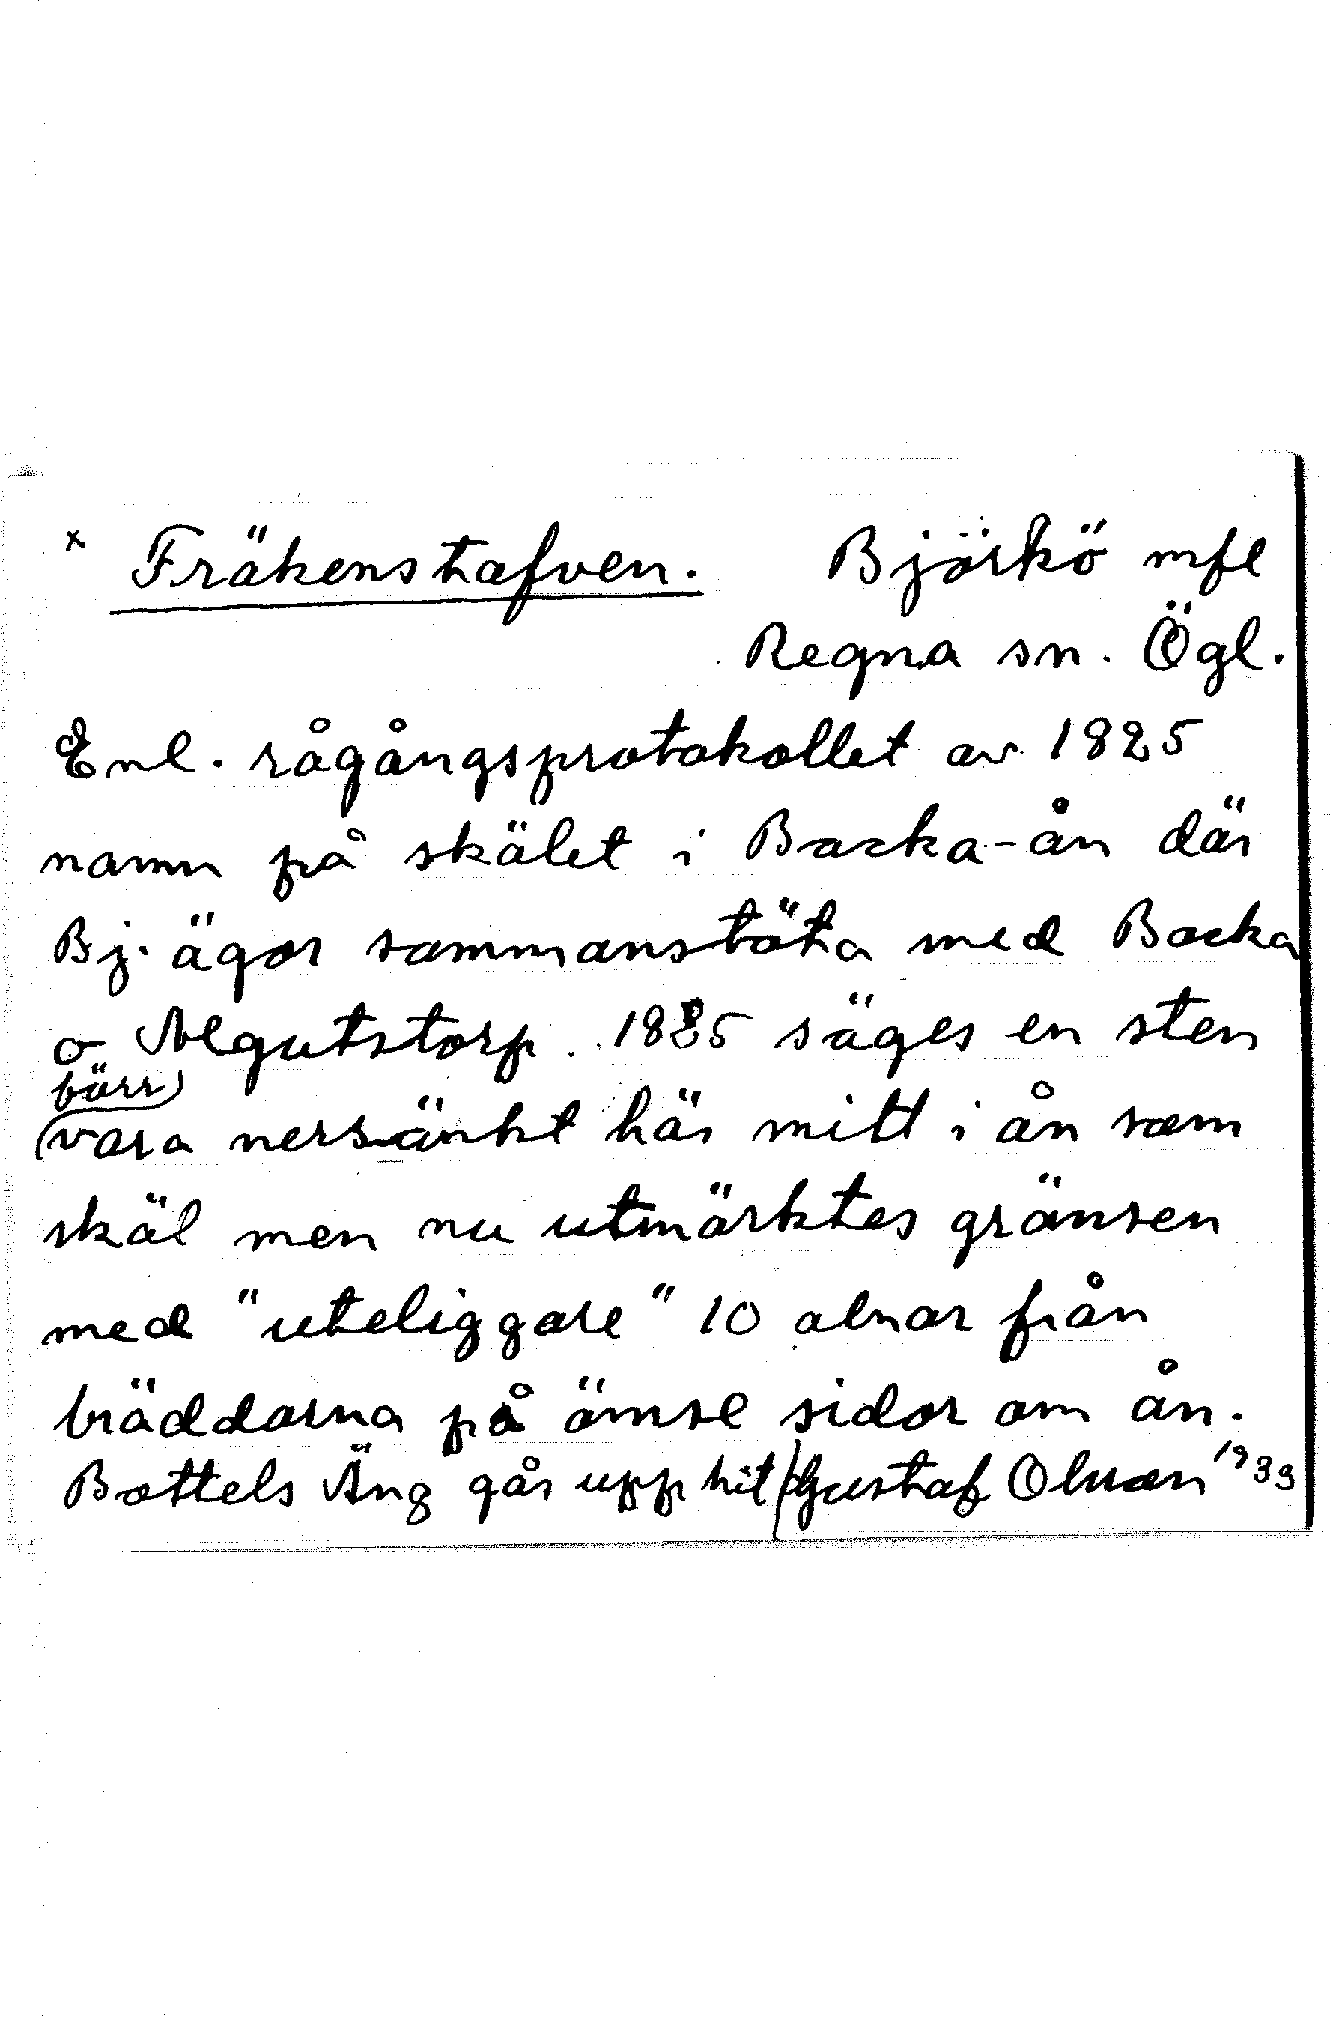 x Fräkenstafven. Björkö mfl
Regna sn. Ögl.
Enl. rågångsprotokollet av 1825
namn på skälet i Backa-ån där
Bj. ägor sammanstöta med Backa
o Algutstorp. 1825 säges en sten
börr)
(vara nersänkt här mitt i ån som
skäl men nu utmärktes gränsen
med "uteliggare" 10 alnar från
bräddarna på ömse sidor om ån.
Bottels Äng går upp hit (Gustaf Olsson 1933